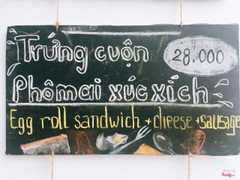 Trứng cuộn 28.000
Phômai xúc xích
Egg roll sandwich + cheese + sausage